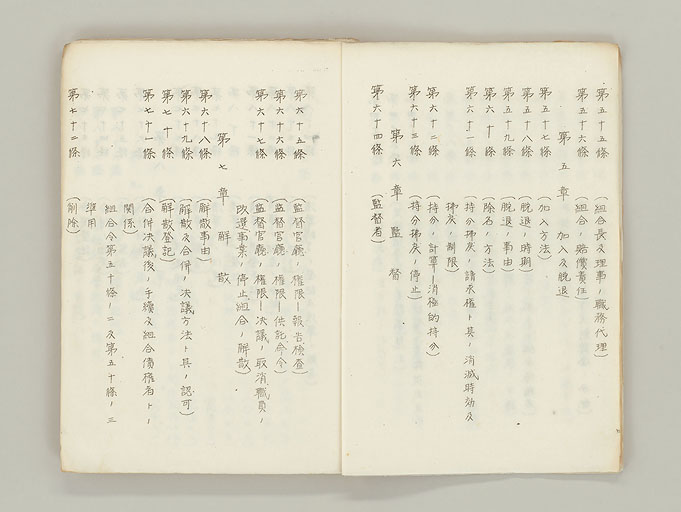 第五十五條 (組合長及理事ノ職務代理)
第五十六條 (組合ノ賠償責任)
第五章 加入及脱退
第五十七條 (加入方法)
第五十八條 (脱退ノ時期)
第五十九條 (脱退ノ事由)
第六十條 (除名ノ方法)
第六十一條 (持分拂戻ノ請求權ト其ノ消滅時効及
拂戻ノ制限)
第六十二條 (持分ノ計算―消極的持分)
第六十三條 (持分拂戻ノ停止)
第六章 監督
第六十四條 (監督者)
第六十五條 (監督官廳ノ權限―報告檢査)
第六十六條 (監督官廳ノ權限―供託命令)
第六十七條 (監督官廳ノ權限―決議ノ取消職員ノ
改選事業ノ停止組合ノ解散)
第七章 解散
第六十八條 (解散事由)
第六十九條 (解散及合併ノ決議方法ト其ノ認可)
第七十條 (解散登記)
第七十一條 (合併決議後ノ手續及組合債權者トノ
關係)
組合令第五十條ノ二及第五十條ノ三
準用
第七十二條 (削除)